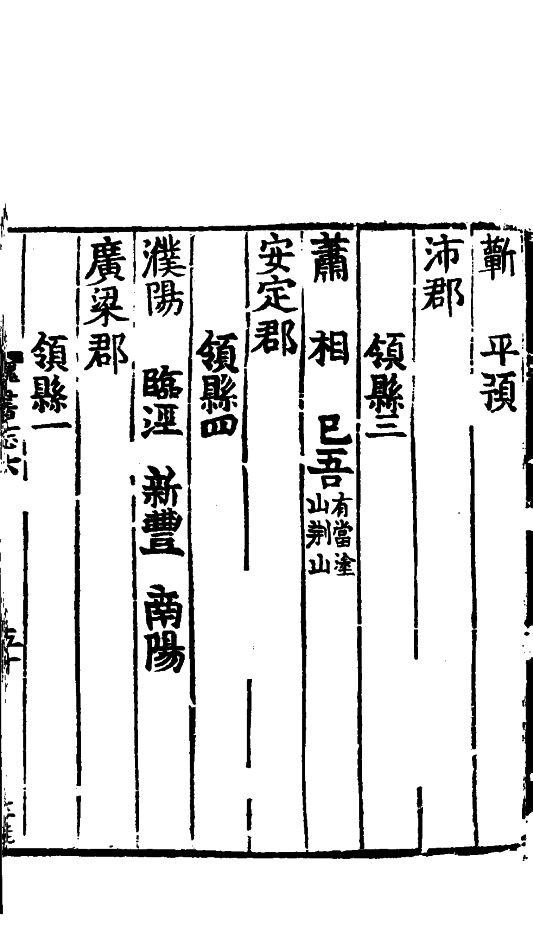 蘄 平預
沛郡
領縣三
蕭 相 巳吾 有當塗山荆山
安定郡
領縣四
濮陽 臨涇 新豐 南陽
廣梁郡
領縣一
魏書志六